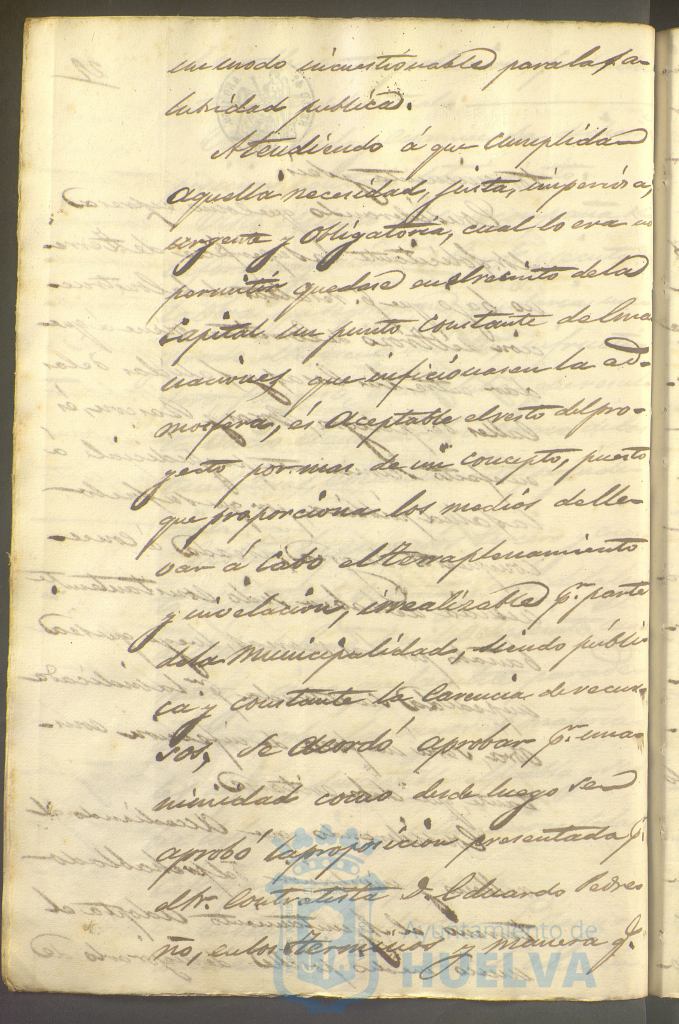 un modo incuestionable para la sa-
lubridad publica.
Atendiendo á que cumplida
aquella necesidad, justa, imperiosa,
urgente y obligatoria, cual lo era no
permitir quedase en el recinto de la
capital un punto constante de ema
naciones que inficionasen la ad-
mosfera, és aceptable el resto del pro-
yecto por mas de un concepto, puesto
que proporciona los medios de lle-
var á cabo el terraplenamiento
y nivelacion, irrealizable pr. parte
de la Municipalidad, siendo públi
ca y constante la carencia de recur-
sos, se acordó aprobar pr. una-
nimidad como desde luego se
aprobó la proposicion presentada pr.
el Sr. Contratista D. Eduardo Pedre
ño, en los terminos y manera q.
Ayuntamiento de
HUELVA